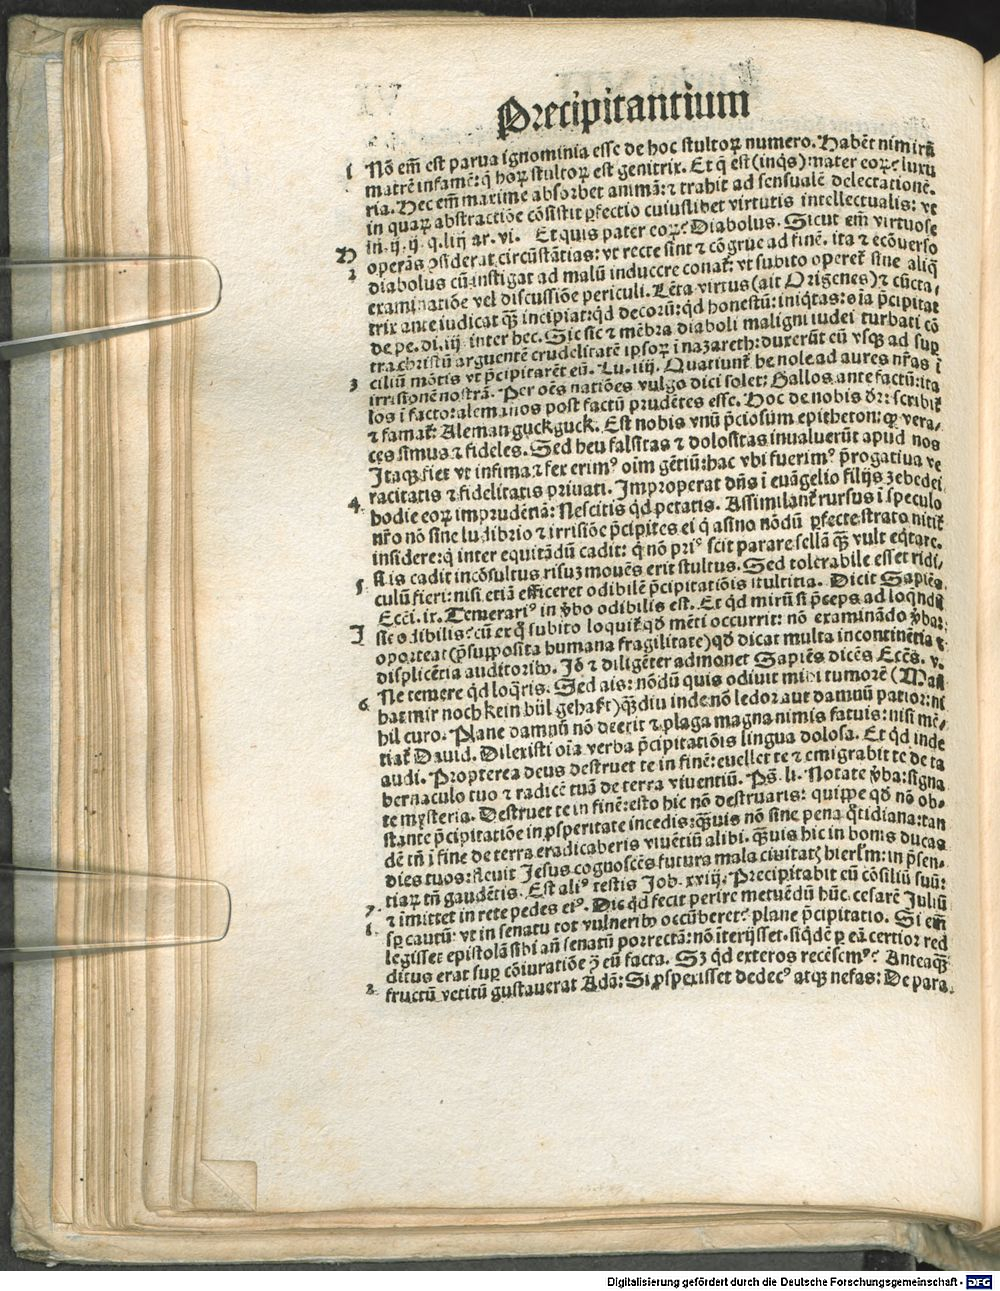 Precipitantium
1 Nō em̄ est parua ignominia esse de hoc stultoꝝ numero. Habēt nimirū
matrē infamē: q̄ hoꝝ stultoꝝ est genitrix. Et q̄ est (inq̄s): mater eoꝝ? luxu
ria. Hec em̄ maxime absorbet animā: ⁊ trahit ad sensualē delectationē.
in quaꝝ abstractiōe cōsistit ꝑfectio cuiuslibet virtutis intellectualis: vt
in. ij. ij. q. liij ar. vi. Et quis pater eoꝝ? Diabolus. Sicut em̄ virtuose
D operās ꝯsiderat circūstātias: vt recte sint ⁊ cōgrue ad finē. ita ⁊ ecōuerso
2 diabolus cū instigat ad malū inducere conat᷑: vt subito operet᷑ sine aliq̄
examinatiōe vel discussiōe periculi. Lēta virtus (ait Origenes) ⁊ cūcta⸗
trix ante iudicat qȝ̄ incipiat: qd decorū: qd honestū: iniq̄tas: oīa p̄cipitat
de pe. di. iij. inter hec. Sic sic ⁊ mēbra diaboli maligni iudei turbati cō
tra christū arguentē crudelitatē ipsoꝝ ī nazareth: duxerūt eū vsqȝ ad suꝑ
ciliū mōtis vt p̄cipitarēt eū. Lu. iiij. Quatiunt᷑ he nole ad aures nr̄as ī
3 irrisionē nostrā. Per oēs natiōes vulgo dici solet: Gallos ante factū: ita
los ī facto: alemanos post factū prudētes esse. Hoc de nobis dr̄: scribit᷑
⁊ famat᷑: Aleman guckguck. Est nobis vnū p̄ciosum epitheton: qꝝ vera⸗
ces simus ⁊ fideles. Sed heu falsitas ⁊ dolositas inualuerūt apud nos
Itaqȝ fiet vt infima ⁊ fex erimꝰ oīm gētiū: hac vbi fuerimꝰ p̄rogatiua ve
racitatis ⁊ fidelitatis priuati. Improperat dn̄s ī euāgelio filijs zebedei
4 hodie eoꝝ imprudētiā: Nescitis qd petatis. Assimilant᷑ rursus ī speculo
nr̄o nō sine ludibrio ⁊ irrisiōe p̄cipites ei q̄ asino nōdū ꝑfecte strato nitit᷑
insidere: q̄ inter equitādū cadit: q̄ nō priꝰ scit parare sellā qȝ̄ vult eq̄tare.
Si is cadit incōsultus risuȝ mouēs erit stultus. Sed tolerabile esset ridi⸗
5 culū fieri: nisi etiā efficeret odibilē p̄cipitatiōis stultitia. Dicit Sapiēs
Ecci. ix. Temerariꝰ in v̄bo odibilis est. Et qd mirū si p̄ceps ad loqndū
I sit odibilis? cū ex q̄ subito loquit᷑ qd mēti occurrit: nō examinādo v̄ba:
oporteat (p̄supposita humana fragilitate) qd dicat multa incontinētia ⁊
displicētia auditoribꝰ. Iō ⁊ diligēter admonet Sapiēs dicēs Eccs. v.
Ne temere qd loq̄ris. Sed ais: nōdū quis odiuit mihi tumorē (Man
6 hat mir noch kein bül gehakt) qȝ̄diu inde nō ledor aut damnū patior: ni
hil curo. Plane damnū nō deerit ⁊ plaga magna nimis fatuis: nisi mē⸗
tiat᷑ Dauid. Dilexisti oīa verba p̄cipitatiōis lingua dolosa. Et qd inde
audi. Propterea deus destruet te in finē: euellet te ⁊ emigrabit te de ta
bernaculo tuo ⁊ radicē tuā de terra viuentiū. Ps. li. Notate v̄ba: signa
te mysteria. Destruet te in finē: esto hic nō destruaris: quippe qd nō ob⸗
stante p̄cipitatiōe in ꝓsperitate incedis: qȝ̄uis nō sine pena q̄tidiana: tan
dē tn̄ ī fine de terra eradicaberis viuētiū alibi. qȝ̄uis hic in bonis ducas
dies tuos: sicuit Iesus cognoscēs futura mala ciuitatꝭ hierl̄m: in p̄sen⸗
tiaꝝ tn̄ gaudētis. Est aliꝰ testis Job. xxiij. Precipitabit eū cōsiliū suū:
7 ⁊ īmittet in rete pedes eiꝰ. Dic qd fecit perire metuēdū hūc cesarē Juliū
1 sꝑ cautū: vt in senatu tot vulneribꝰ occūberet? plane p̄cipitatio. Si em̄
legisset epistolā sibi an̄ senatū porrectā: nō īterijsset. siqdē ꝑ eā certior red
ditus erat suꝑ cōiuratiōe ꝯ̄ eū facta. Sȝ qd exteros recēsemꝰ? Anteaqȝ̄
2 fructū vetitū gustauerat Adā: Si ꝓspexisset dedecꝰ atqȝ nefas: De para⸗
Digitalisierung gefördert durch die Deutsche Forschungsgemeinschaft - DFG